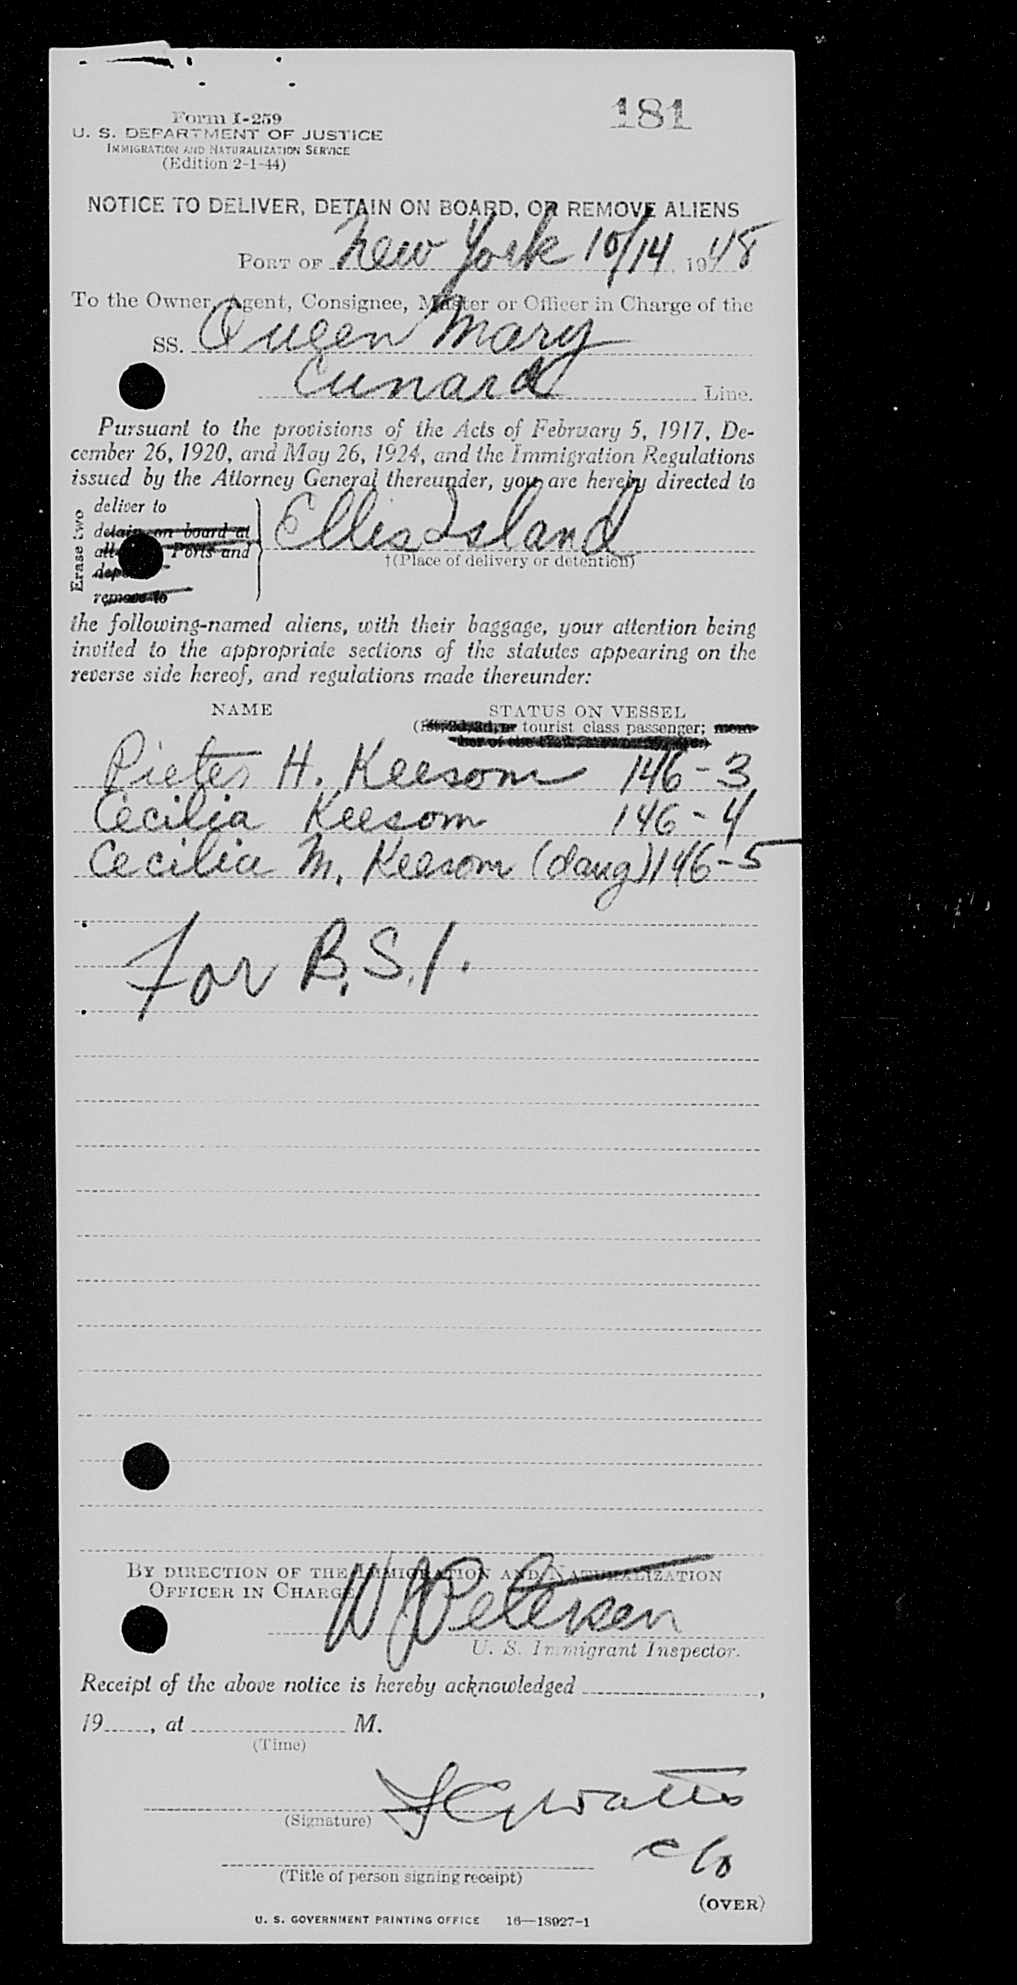 181
Form I-259
U. S. DEPARTMENT OF JUSTICE
IMMIGRATION AND NATURALIZATION SERVICE
(Edition 2-1-44)
NOTICE TO DELIVER, DETAIN ON BOARD, OR REMOVE ALIENS
PORT OF New York 10/14, 1948
To the Owner, Agent, Consignee, Master or Officer in Charge of the
SS. Queen Mary
Cunard Line.
Pursuant to the provisions of the Acts of February 5, 1917, De-
cember 26, 1920, and May 26, 1924, and the Immigration Regulations
issued by the Attorney General thereunder, you are hereby directed to
Erase two
deliver to
detain on board at
all Ports and
remove to
Ellis Island
†(Place of delivery or detention)
the following-named aliens, with their baggage, your attention being
invited to the appropriate sections of the statutes appearing on the
reverse side hereof, and regulations made thereunder:
NAME STATUS ON VESSEL
(1st, 2d, 3d, or tourist class passenger; mem-
ber of the crew,
Pieter H. Keesom 146-3
Cecilia Keesom 146-4
Cecilia M. Keesom (daug) 146-5
For B.S.I.
BY DIRECTION OF THE IMMIGRATION AND NATURALIZATION
OFFICER IN CHARGE
W J Petersen
U. S. Immigrant Inspector.
Receipt of the above notice is hereby acknowledged ,
19 , at M.
(Time)
Watts
(Signature)
c/o
(Title of person signing receipt)
(OVER)
U. S. GOVERNMENT PRINTING OFFICE 16—18927-1